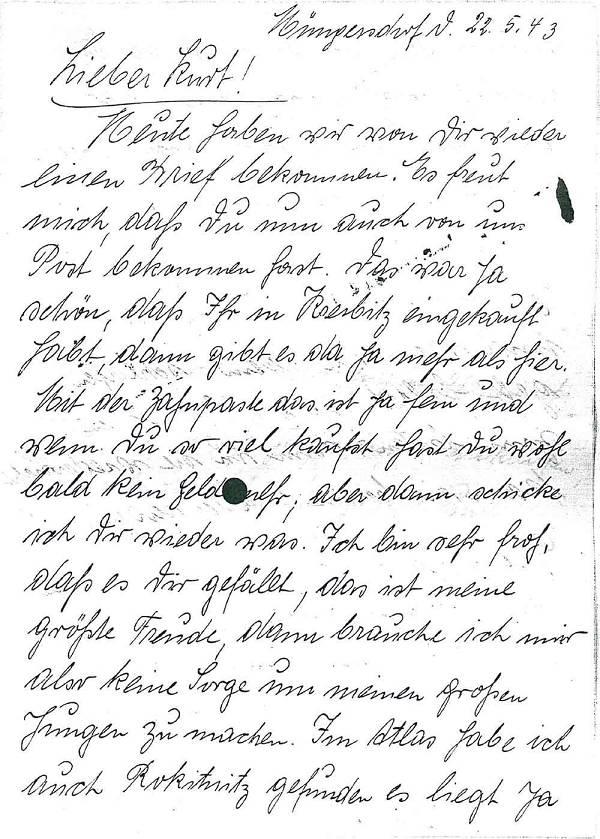 Müngersdorf d. 22.5.43
Lieber Kurt!
Heute haben wir von Dir wieder
einen Brief bekommen. Es freut
mich, daß Du nun auch von uns
Post bekommen hast. Das war ja
schön, daß Ihr in Kreibitz eingekauft
habt, dann gibt es da ja mehr als hier.
Mit der Zahnpaste das ist ja fein und
wenn Du so viel kaufst hast Du wohl
bald kein Geld mehr, aber dann schicke
ich Dir wieder was. Ich bin sehr froh,
daß es Dir gefällt, das ist meine
größte Freude, dann brauche ich mir
also keine Sorge um meinen großen
Jungen zu machen. Im Atlas habe ich
auch Rokitnitz gefunden es liegt ja